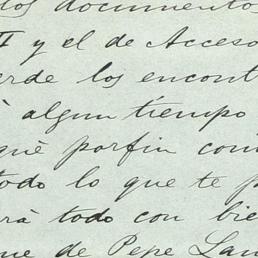 los documentos
II y el de Acceso
erde los encont
à algun tiempo
què porfin con
todo lo que te p
rà todo con bie
ue de Pepe Lan